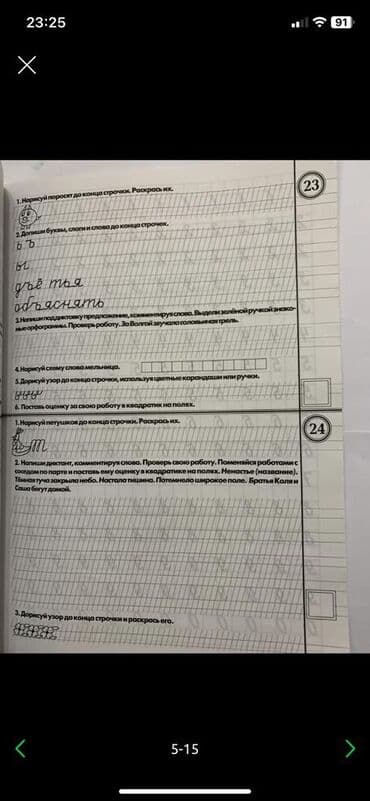 23:25
91
23
1. Нарисуй поросят до конца строчки. Раскрась их.
2. Допиши буквы, слоги и слова до конца строчек.
ь ъ
ы
дъе тья
объяснять
3. Напиши под диктовку предложение, комментируя слова. Выдели зелёной ручкой знако-
мые орфограммы. Проверь работу. За Волгой звучала соловьиная трель.
4. Нарисуй схему слова мельница.
5. Дорисуй узор до конца строчки, используя цветные карандаши или ручки.
6. Поставь оценку за свою работу в квадратик на полях.
24
1. Нарисуй петушков до конца строчки. Раскрась их.
2. Напиши диктант, комментируя слова. Проверь свою работу. Поменяйся работами с
соседом по парте и поставь ему оценку в квадратике на полях. Ненастье (название).
Тёмная туча закрыла небо. Настала тишина. Потемнело широкое поле. Братья Коля и
Саша бегут домой.
3. Дорисуй узор до конца строчки и раскрась его.
5-15